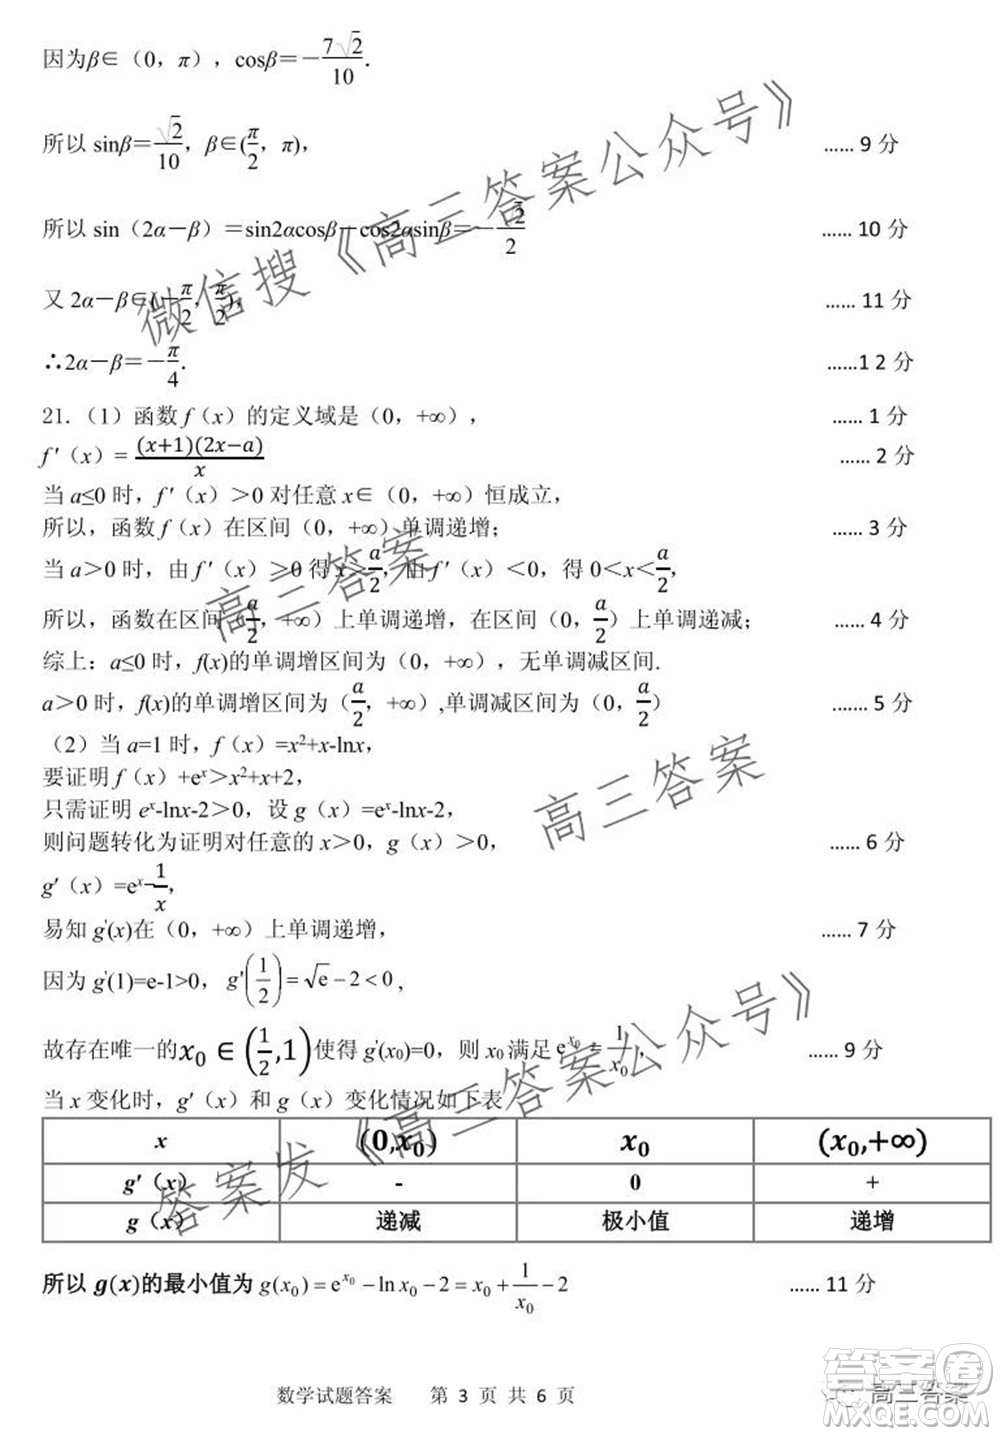 因为β∈（0，π），cosβ＝－7√2/10．
所以 sinβ＝√2/10，β∈(π/2，π)， …… 9 分
所以 sin（2α－β）＝sin2αcosβ－cos2αsinβ＝－√2/2 …… 10 分
又 2α－β∈(－π/2，π/2)， …… 11 分
∴2α－β＝－π/4. ……1 2 分
21.（1）函数 f（x）的定义域是（0，+∞）， …… 1 分
f ′（x）= (x+1)(2x−a)/x …… 2 分
当 a≤0 时，f ′（x）＞0 对任意 x∈（0，+∞）恒成立，
所以，函数 f（x）在区间（0，+∞）单调递增； …… 3 分
当 a＞0 时，由 f ′（x）＞0 得 x＞a/2，由 f ′（x）＜0，得 0＜x＜a/2，
所以，函数在区间（a/2，+∞）上单调递增，在区间（0，a/2）上单调递减； …… 4 分
综上：a≤0 时，f(x)的单调增区间为（0，+∞），无单调减区间.
a＞0 时，f(x)的单调增区间为（a/2，+∞）,单调减区间为（0，a/2） ....... 5 分
（2）当 a=1 时，f（x）=x²+x-lnx，
要证明 f（x）+eˣ＞x²+x+2，
只需证明 eˣ-lnx-2＞0，设 g（x）=eˣ-lnx-2，
则问题转化为证明对任意的 x＞0，g（x）＞0， …… 6 分
g′（x）=eˣ-1/x，
易知 g'(x)在（0，+∞）上单调递增， …… 7 分
因为 g'(1)=e-1>0，g'(1/2)=√e−2<0，
故存在唯一的x₀∈(1/2,1)使得 g'(x₀)=0，则 x₀满足 e^x₀ = 1/x₀， …… 9 分
当 x 变化时，g′（x）和 g（x）变化情况如下表
x (0,x₀) x₀ (x₀,+∞)
g′（x） - 0 +
g（x） 递减 极小值 递增
所以 g(x)的最小值为 g(x₀)=e^x₀−ln x₀−2=x₀+1/x₀−2 …… 11 分
数学试题答案 第 3 页 共 6 页
微信搜《高三答案公众号》
高三答案
高三答案
答案发《高三答案公众号》
高三答案
答案圈
MXQE.COM